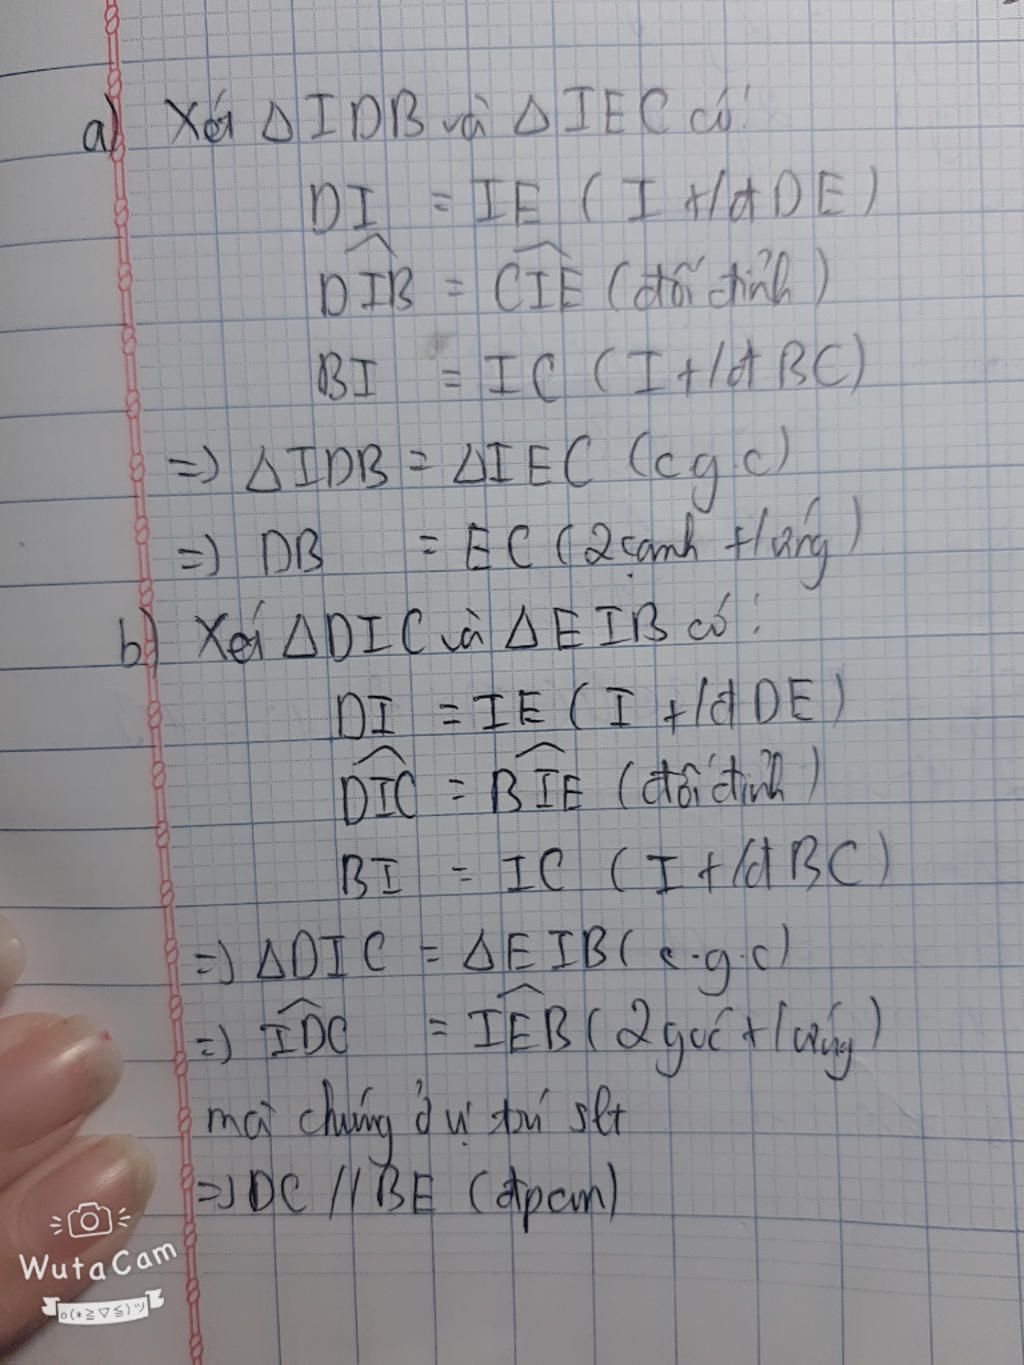 a) Xét Δ IDB và Δ IEC có:
DI = IE ( I t/đ DE )
DIB = CIE (đối đỉnh )
BI = IC ( I t/đ BC)
=> ΔIDB = ΔIEC (c g c)
=> DB = EC ( 2 cạnh t/ ứng )
b) Xét ΔDIC và ΔEIB có :
DI = IE ( I t/đ DE )
DIC = BIE (đối đỉnh )
BI = IC ( I t/đ BC )
=> ΔDIC = ΔEIB( c.g.c)
=> IDC = IEB ( 2 góc t/ ứng )
mà chúng ở vị trí slt
=> DC // BE (đpcm)
WutaCam
o(*≧▽≦)ツ